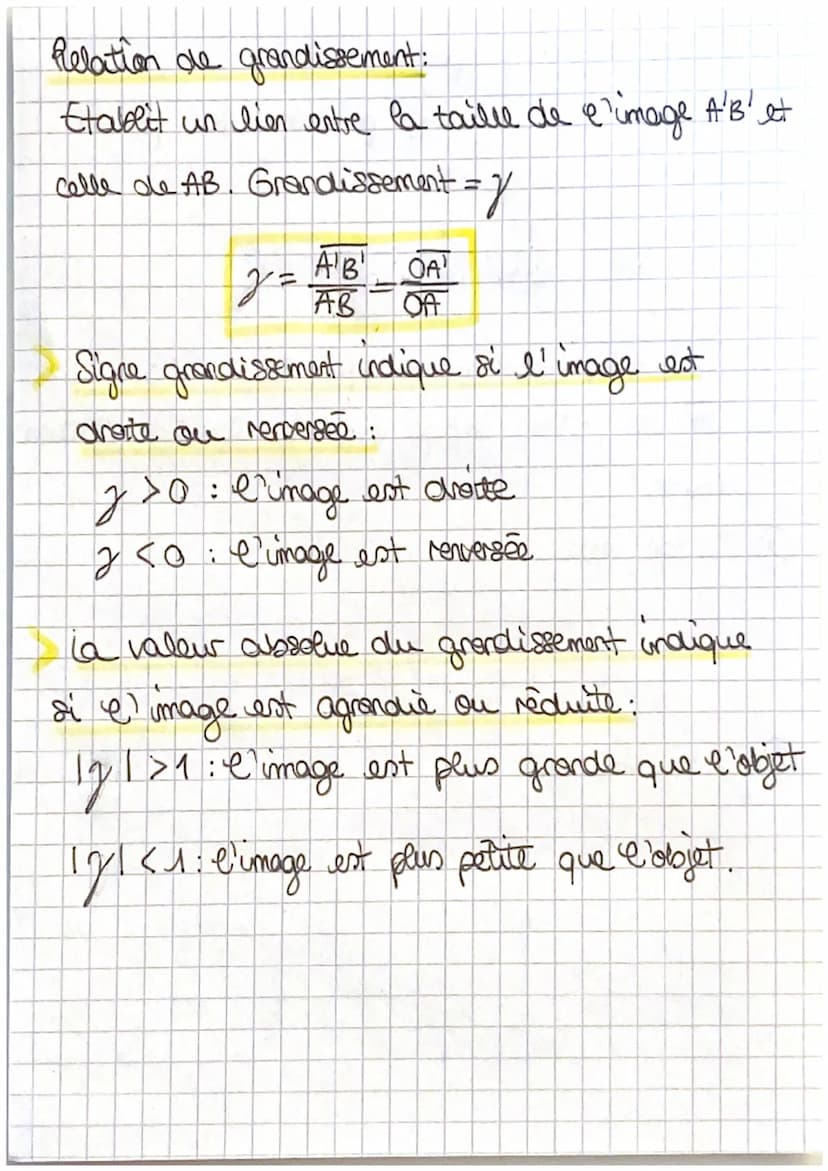 Relation de grandissement:
Etablit un lien entre la taille de l'image A'B' et
celle de AB. Grandissement = γ
γ = A'B'/AB = OA'/OA
> Signe grandissement indique si l'image est
droite ou renversée :
γ > 0 : l'image est droite
γ < 0 : l'image est renversée
> La valeur absolue du grandissement indique
si l'image est agrandie ou réduite :
|γ| > 1 : l'image est plus grande que l'objet
|γ| < 1 : l'image est plus petite que l'objet.